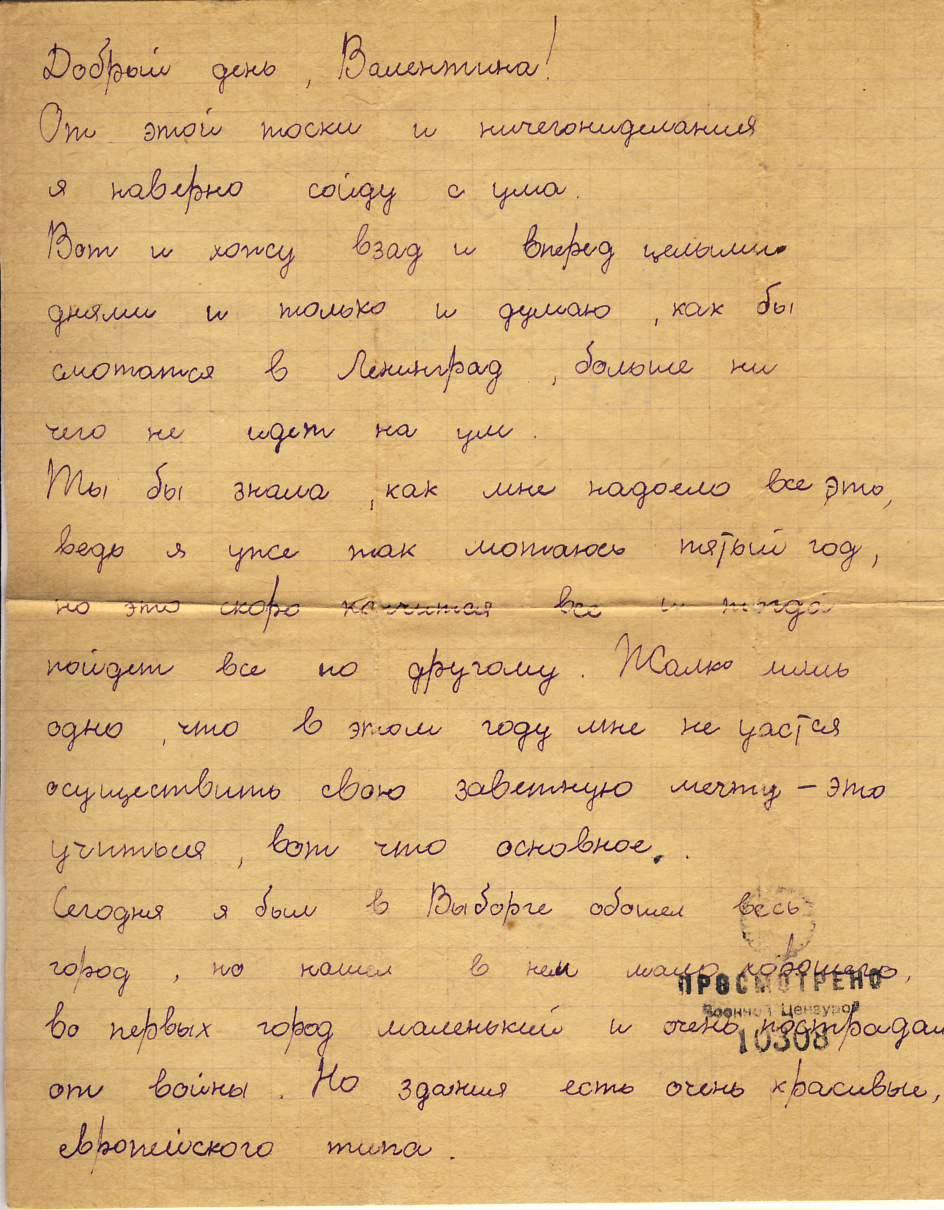 Добрый день, Валентина!
От этой тоски и ничегониделания
я наверно сойду с ума.
Вот и хожу взад и вперед целыми
днями и только и думаю, как бы
смотатся в Ленинград, больше ни
чего не идет на ум.
Ты бы знала, как мне надоело все это,
ведь я уже так мотаюсь пятый год,
но это скоро кончится все и тогда
пойдет все по другому. Жалко лишь
одно, что в этом году мне не уастся
осуществить свою заветную мечту – это
учиться, вот что основное.
Сегодня я был в Выборге обошел весь
город, но нашел в нем мало хорошего,
ПРОСМОТРЕНО
Военной Цензурой
10308
во первых город маленький и очень пострадал
от войны. Но здания есть очень красивые,
европейского типа.